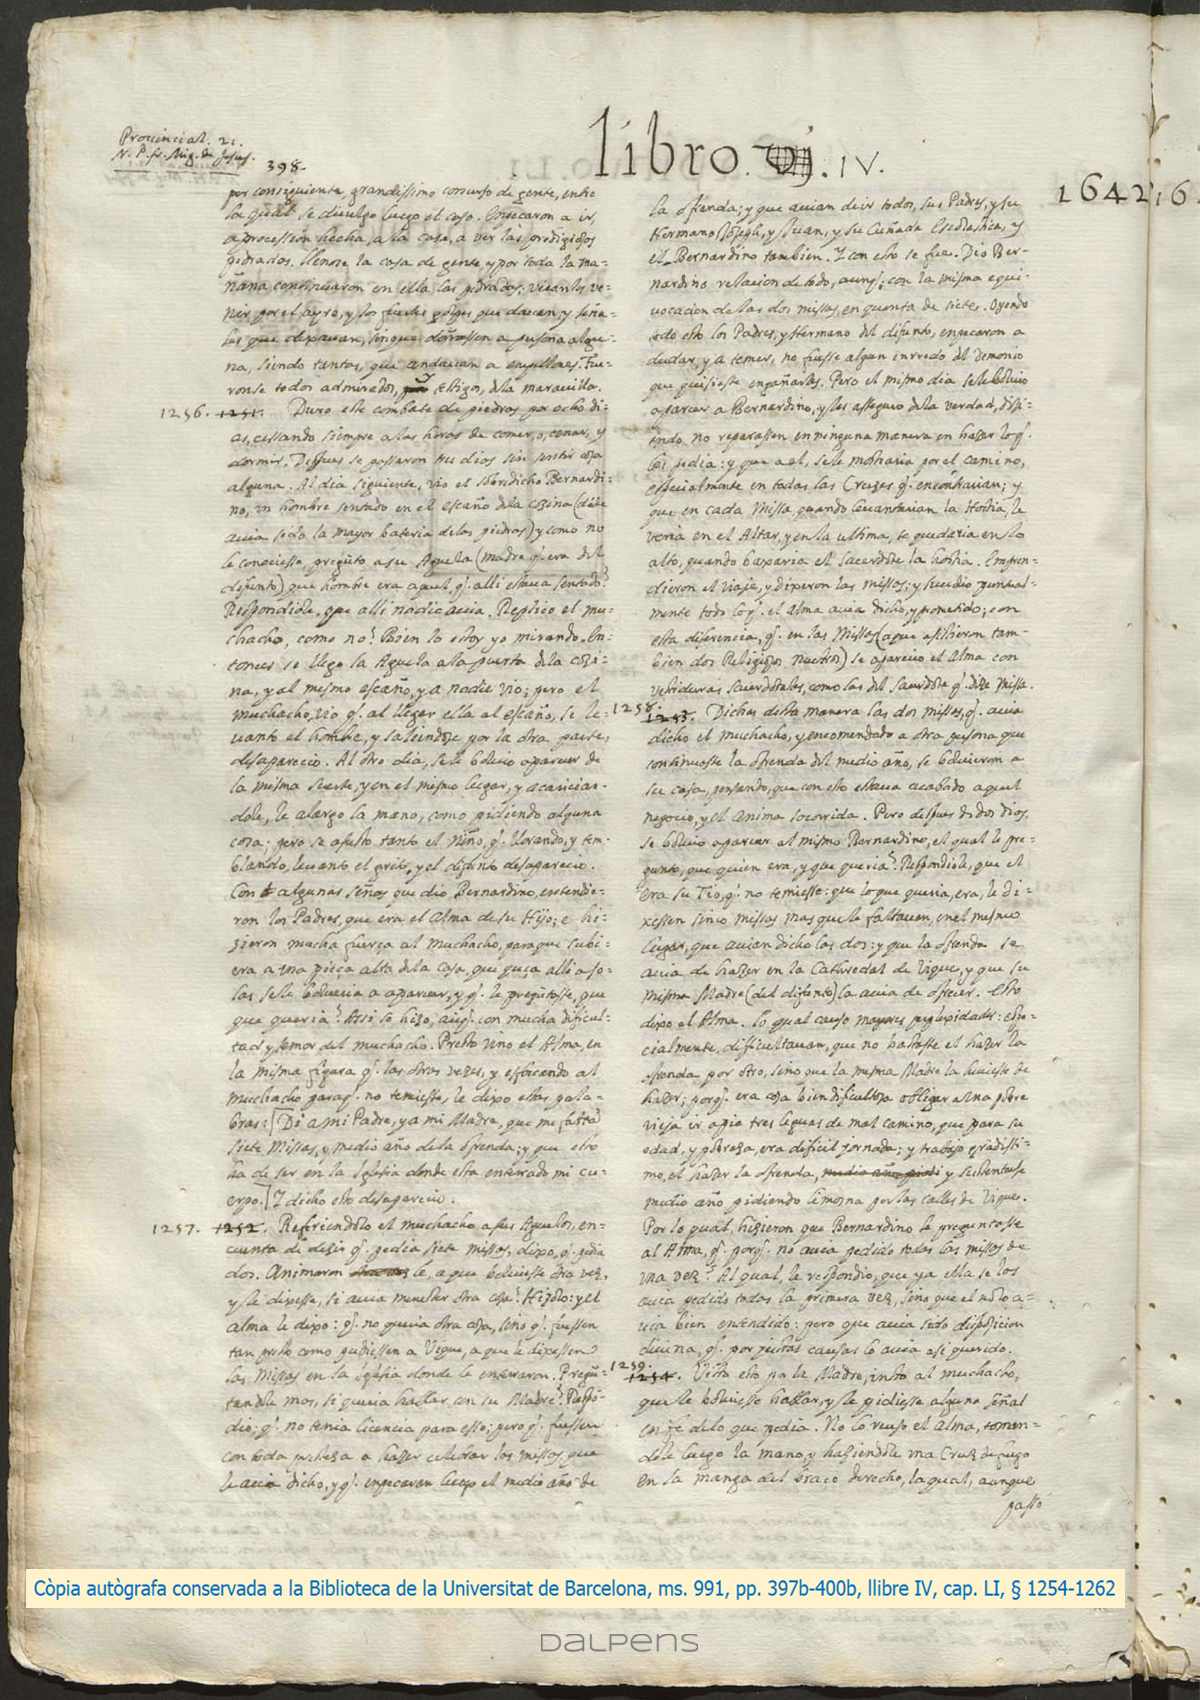 Provincial. 21.
N. P. fr. Mig. de Jesus.
398.
libro. IV.
1642
por consiguiente, grandissimo concurso de gente, entre
la qual se divulgo luego el caso. Empeçaron a ir,
a procession hecha, a la casa, a ver las prodigiosas
pedradas. Llenose la casa de gente y por toda la ma-
ñana continuaron en ella las pedradas; veianlas ve-
nir por el ayre, y los fuertes golpes que davan, y seña-
les que dexavan, sin que dañassen a persona algu-
na, siendo tantas, que andavan a empellones. Fue-
ronse todos admirados, y testigos, dela maravilla.
1256. 1251. Duro este combate de piedras por ocho di-
as, cessando siempre a las horas de comer, o, cenar, y
dormir. Despues se passaron tres dias sin sentir cosa
alguna. Al dia siguiente, vio el sobredicho Bernardi-
no, un hombre sentado en el escaño dela cozina (dõde
avia sido la mayor bateria delas piedras) y como no
le conociesse, pregũto a su Aguela (madre q. era del
difunto) que hombre era aquel, q. alli estava sentado?
Respondiole, que alli nadie avia. Replico el mu-
chacho, como no? Bien lo estoy yo mirando. En-
tonces se llego la Aguela a la puerta dela cozi-
na, y al mesmo escaño, y a nadie vio; pero el
muchacho, vio q. al llegar ella al escaño, se le-
vanto el hombre, y saliendose por la otra parte,
desaparecio. Al otro dia, sele bolvio aparecer de
la misma suerte, y en el mismo lugar, y acarician-
dole, le alargo la mano, como pidiendo alguna
cosa; pero se asusto tanto el niño, q. llorando, y tem-
blando, levanto el grito, y el difunto desaparecio.
Con algunas señas que dio Bernardino, entendie-
ron los Padres, que era el Alma de su Hijo; e hi-
zieron mucha fuerça al muchacho, paraque subi-
era a una pieça alta dela casa, que quiça alli a so-
las sele bolveria a aparecer, y q. le pregũtasse, que
que queria? Assi se hizo, aũq. con mucha dificul-
tad y temor del muchacho. Presto vino el Alma, en
la misma figura q. las otras vezes, y esforçando al
muchacho paraq. no temiesse, le dixo estas pala-
bras: [Di a mi Padre, y a mi Madre, que me faltã
siete Missas, y medio año dela ofrenda; y que esto
ha de ser en la Iglesia donde esta enterrado mi cu-
erpo.] Y dicho esto desaparecio.
1257. 1252. Refiriendolo el muchacho a sus Aguelos, en-
cuenta de dezir q. pedia siete missas, dixo, q. pedia
dos. Animaron le, a que bolviesse otra vez,
y le dixesse, si avia menester otra cosa? Hizolo: y el
alma le dixo: q. no queria otra cosa, sino q. fuessen
tan presto como pudiessen a Vique, a que le dixessen
las Missas en la Iglesia donde le enterraron. Pregũ-
tandole mas, si queria hablar con su Madre? Respõ-
dio: q. no tenia licencia para esso; pero q. fuessen
con toda presteza a hazer celebrar las missas, que
le avia dicho, y q. empeçaran luego el medio año de
la ofrenda; y que avian de ir todos, sus Padres, y su
Hermano Joseph, y Juan, y su Cuñada Escolastica, y
el Bernardino tambien. Y con esto se fue. Dio Ber-
nardino relacion de todo, aunq. con la misma equi-
vocacion de las dos missas, en quenta de siete. Oyendo
esto los Padres, y Hermano del difunto, empeçaron a
dudar, y a temer, no fuesse algun enredo del Demonio
que quisiesse engañarles. Pero el mismo dia sele bolvio
aparecer a Bernardino, y les asseguro dela verdad, dizi-
endo, no reparassen en ninguna manera en hazer lo q.
les pedia: y que a el, sele mostraria por el camino,
especialmente en todas las Cruzes q. encontrarian; y
que en cada Missa, quando levantarian la Hostia, le
veria en el Altar, y en la ultima, se quedaria en lo
alto, quando baxaria el sacerdote la hostia. Empren-
dieron el viaje, y dixeron las missas; y sucedio puntual-
mente todo lo q. el Alma avia dicho, y prometido; con
esta diferencia, q. en las Missas (a que assistieron tam-
bien dos Religiosos nuestros) se aparecio el Alma con
vestiduras sacerdotales, como las del sacerdote q. dezia Missa.
1258. 1253. Dichas desta manera las dos missas, q. avia
dicho el muchacho, y encomendado a otra persona que
continuasse la ofrenda del medio año, se bolvieron a
su casa, pensando, que con esto estava acabado aquel
negocio, y el anima socorrida. Pero despues de dos dias,
se bolvio aparecer al mismo Bernardino, el qual le pre-
gunto, que quien era, y que queria? Respondiole, que el
era su Tio, q. no temiesse: que lo que queria, era, le di-
xessen cinco missas mas que le faltavan, en el mesmo
lugar, que avian dicho las dos: y que la ofrenda se
avia de hazer en la Cathedral de Vique, y que su
misma Madre (del difunto) la avia de ofrecer. Esto
dixo el Alma. Lo qual causo mayores perplexidades: espe-
cialmente, dificultavan, que no bastasse el hazer la
ofrenda por otro, sino que la mesma Madre la huviesse de
hazer; porq. era cosa bien dificultosa obligar a una pobre
vieja ir a pie tres leguas de mal camino, que para su
edad, y pobreza, era dificil jornada; y trabajo grãdissi-
mo, el hazer la ofrenda, y sustentarse
medio año pidiendo limosna por las calles de Vique.
Por lo qual, hizieron que Bernardino le preguntasse
al Alma, q. porq. no avia pedido todas las missas de
una vez? Al qual, le respondio, que ya ella se las
avia pedido todas la primera vez, sino que el no lo a-
via bien entendido: pero que avia sido disposicion
divina, q. por justas causas lo avia asi querido.
1259. 1254. Visto esto por la Madre, insto al muchacho,
que le bolviesse hablar, y le pidiesse alguna señal
en fe delo que pedia. No lo reuso el Alma, toman-
dole luego la mano, y haziendole una Cruz de fuego
en la manga del braço derecho, la qual, aunque
passo
Còpia autògrafa conservada a la Biblioteca de la Universitat de Barcelona, ms. 991, pp. 397b-400b, llibre IV, cap. LI, § 1254-1262
DALPENS